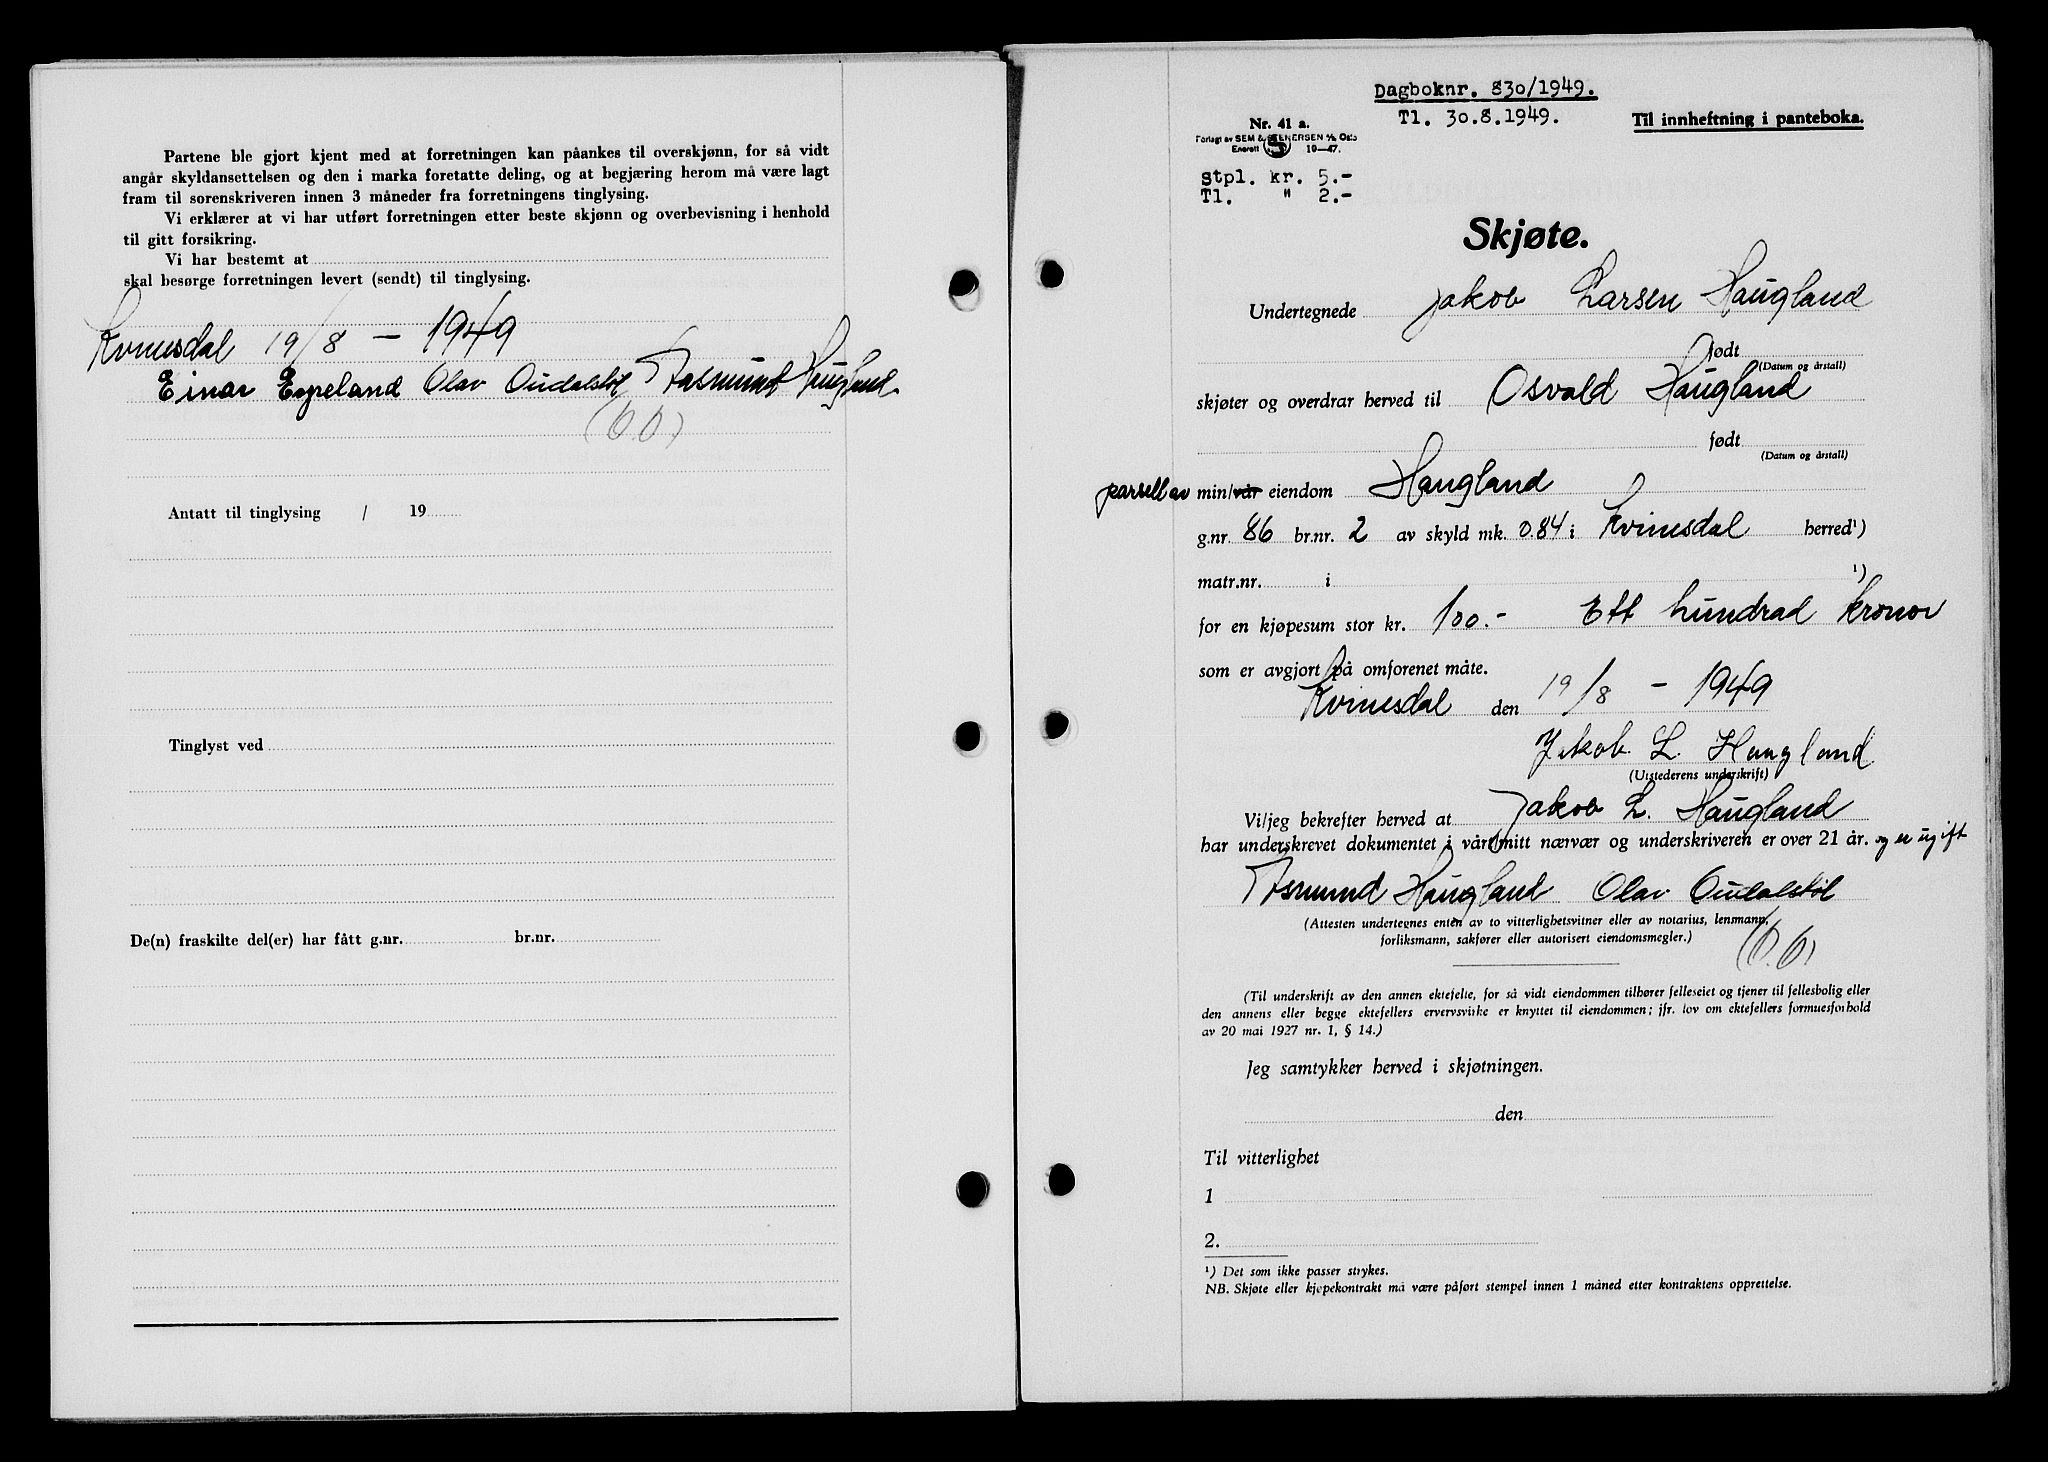 Partene ble gjort kjent med at forretningen kan påankes til overskjønn, for så vidt
angår skyldansettelsen og den i marka foretatte deling, og at begjæring herom må være lagt
fram til sorenskriveren innen 3 måneder fra forretningens tinglysing.
Vi erklærer at vi har utført forretningen etter beste skjønn og overbevisning i henhold
til gitt forsikring.
Vi har bestemt at
skal besørge forretningen levert (sendt) til tinglysing.
Kvinesdal 19/8 - 1949
Einar Egeland Olav Oudalstøl Aasmund Haugland
(O.O)
Antatt til tinglysing / 19
Tinglyst ved
De(n) fraskilte del(er) har fått g.nr. br.nr.
Dagboknr. 830/1949.
Tl. 30.8.1949.
Til innheftning i panteboka.
Nr. 41 a.
Forlagt av SEM & STENERSEN A/S Oslo
Enerett 10-47.
Stpl. kr. 5.-
Tl. " 2.-
Skjøte.
Undertegnede Jakob Larsen Haugland
født
(Datum og årstall)
skjøter og overdrar herved til Osvald Haugland
født
(Datum og årstall)
parsell av min/vår eiendom Haugland
g.nr. 86 br.nr. 2 av skyld mk. 0.84 i Kvinesdal herred¹)
matr.nr. i ¹)
for en kjøpesum stor kr. 100.- Ett hundrad kronor
som er avgjort på omforenet måte.
Kvinesdal den 19/8 - 1949
Jakob L. Haugland
(Utstederens underskrift)
Vi/jeg bekrefter herved at Jakob L. Haugland
har underskrevet dokumentet i vårt/mitt nærvær og underskriveren er over 21 år. og er ugift
Asmund Haugland Olav Oudalstøl
(Attesten undertegnes enten av to vitterlighetsvitner eller av notarius, lensmann,
forliksmann, sakfører eller autorisert eiendomsmegler.)
(O.O)
(Til underskrift av den annen ektefelte, for så vidt eiendommen tilhører felleseiet og tjener til fellesbolig eller
den annens eller begge ektefellers ervervsvirke er knyttet til eiendommen; jfr. lov om ektefellers formuesforhold
av 20 mai 1927 nr. 1, § 14.)
Jeg samtykker herved i skjøtningen.
den
Til vitterlighet
1
2.
¹) Det som ikke passer strykes.
NB. Skjøte eller kjøpekontrakt må være påført stempel innen 1 måned etter kontraktens opprettelse.